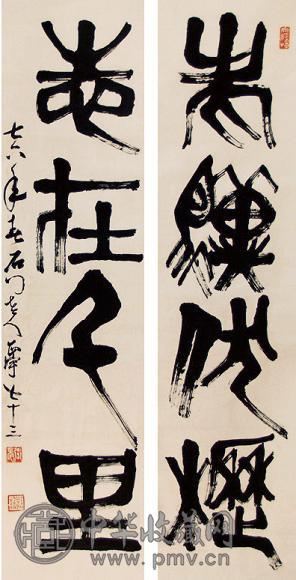 老驥伏櫪
志在千里
七六年春石門老人七十三
中华收藏网
www.pmv.cn